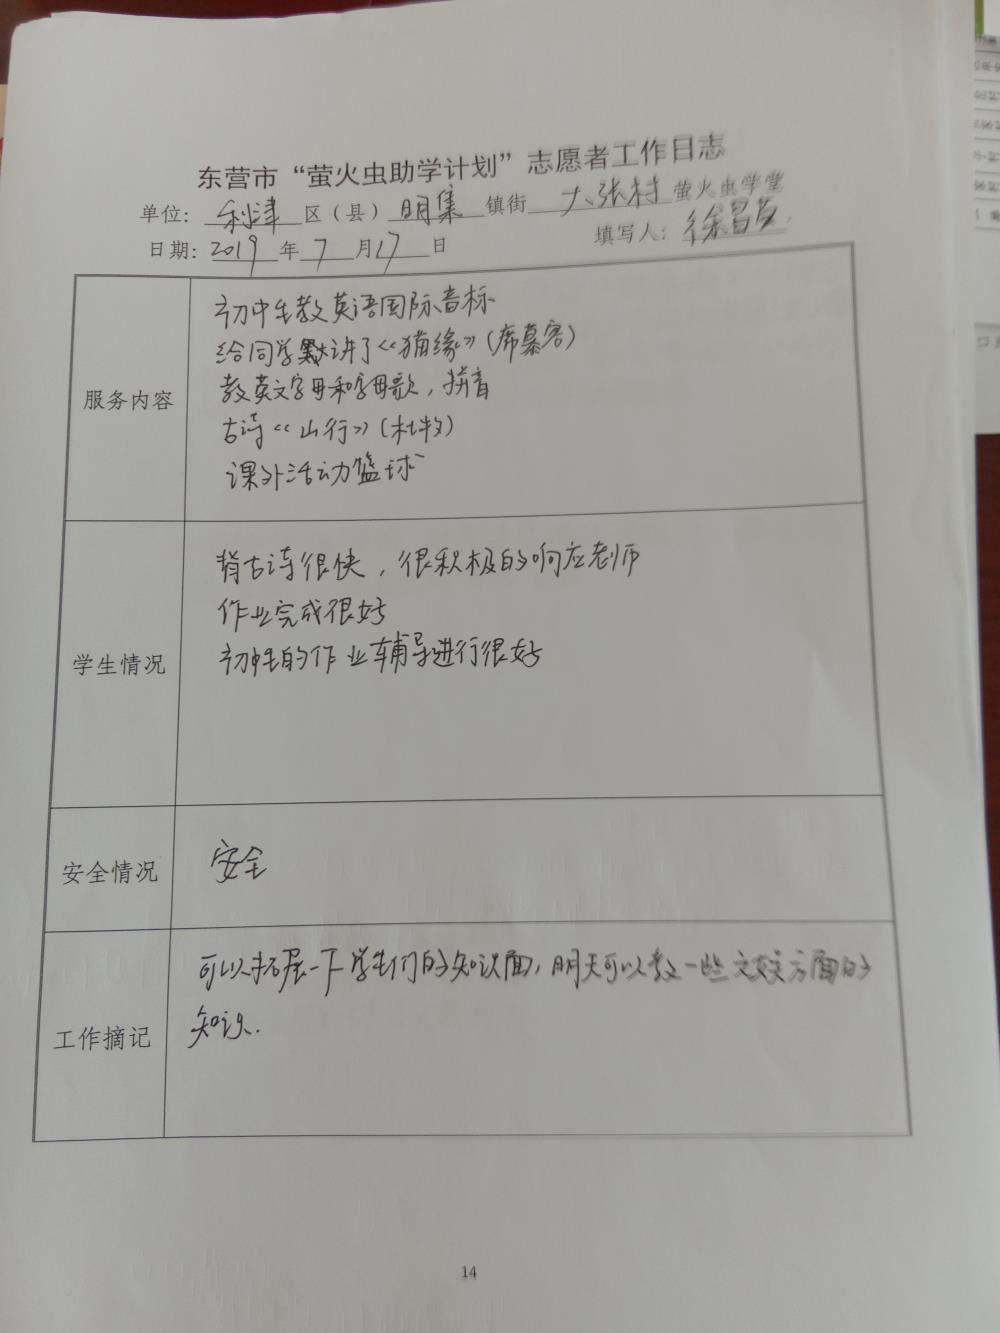 东营市“萤火虫助学计划”志愿者工作日志
单位：利津区（县）明集镇街大张村萤火虫学堂
日期：2019年7月17日 填写人：徐昌
服务内容
初中生教英语国际音标
给同学默讲了《猫缘》（席慕容）
教英文字母和字母歌，拼音
古诗《山行》（杜牧）
课外活动篮球
学生情况
背古诗很快，很积极的响应老师
作业完成很好
初中生的作业辅导进行很好
安全情况
安全
工作摘记
可以拓展一下学生们的知识面，明天可以教一些方面的
知识.
14